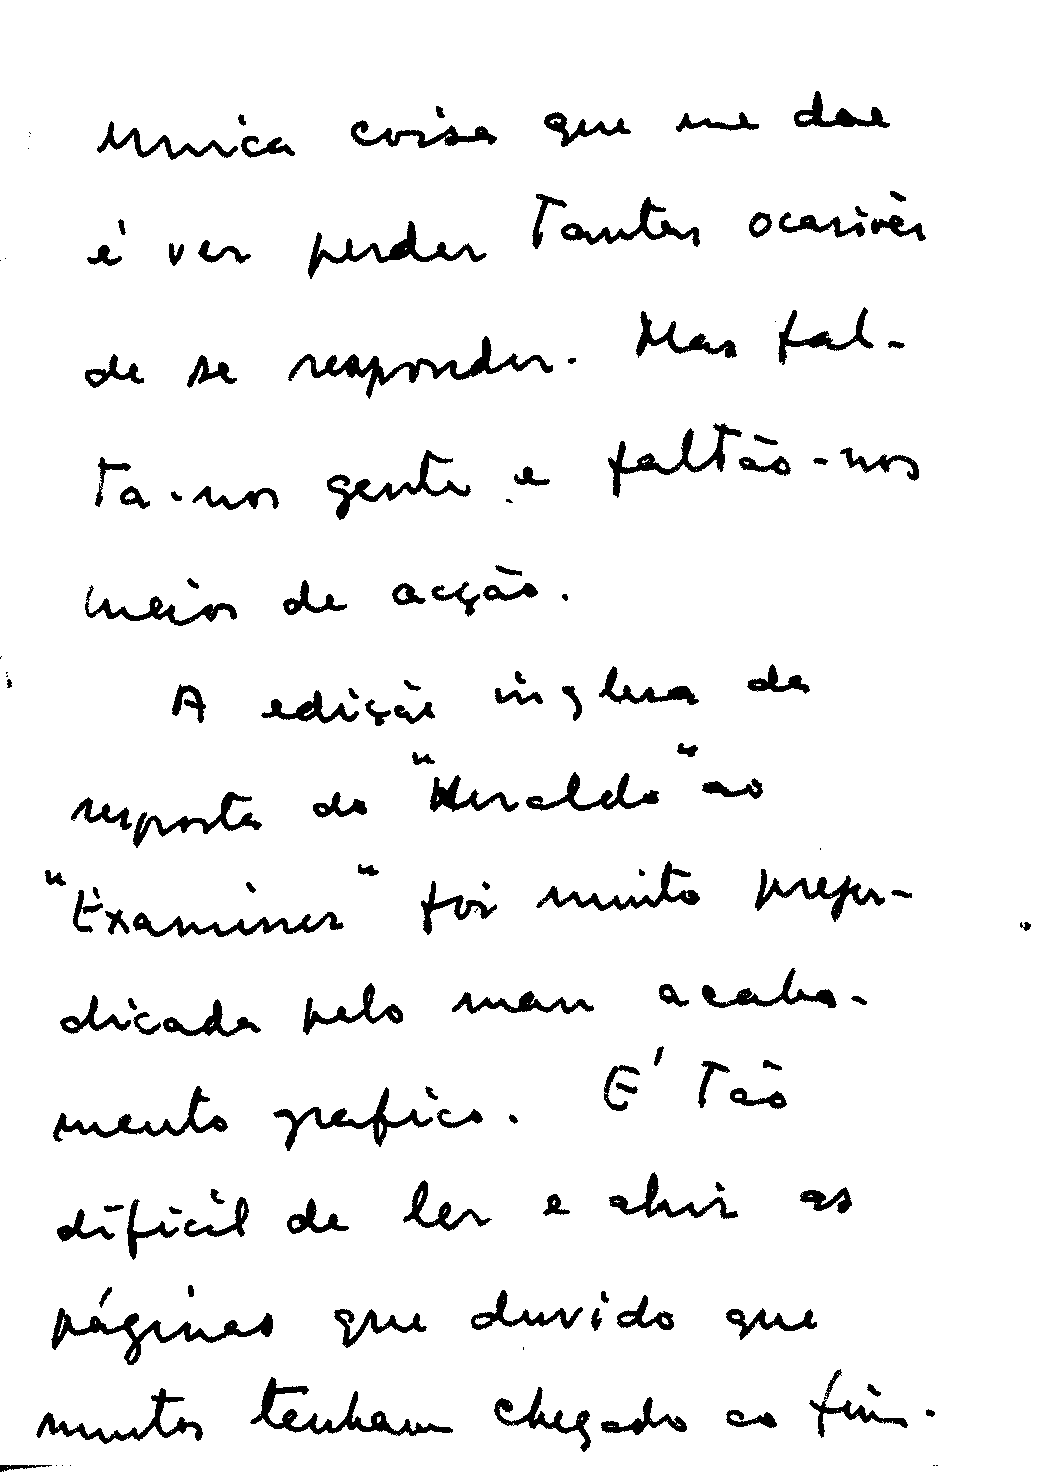 unica coisa que me doe
é ver perder tantas ocasiões
de se responder. Mas fal-
ta-nos gente e faltão-nos
meios de acção.
A edição inglesa da
resposta do "Heraldo" ao
"Examiner" foi muito preju-
dicada pelo mau acaba-
mento grafico. E' tão
dificil de ler e abrir as
páginas que duvido que
muitos tenham chegado ao fim.